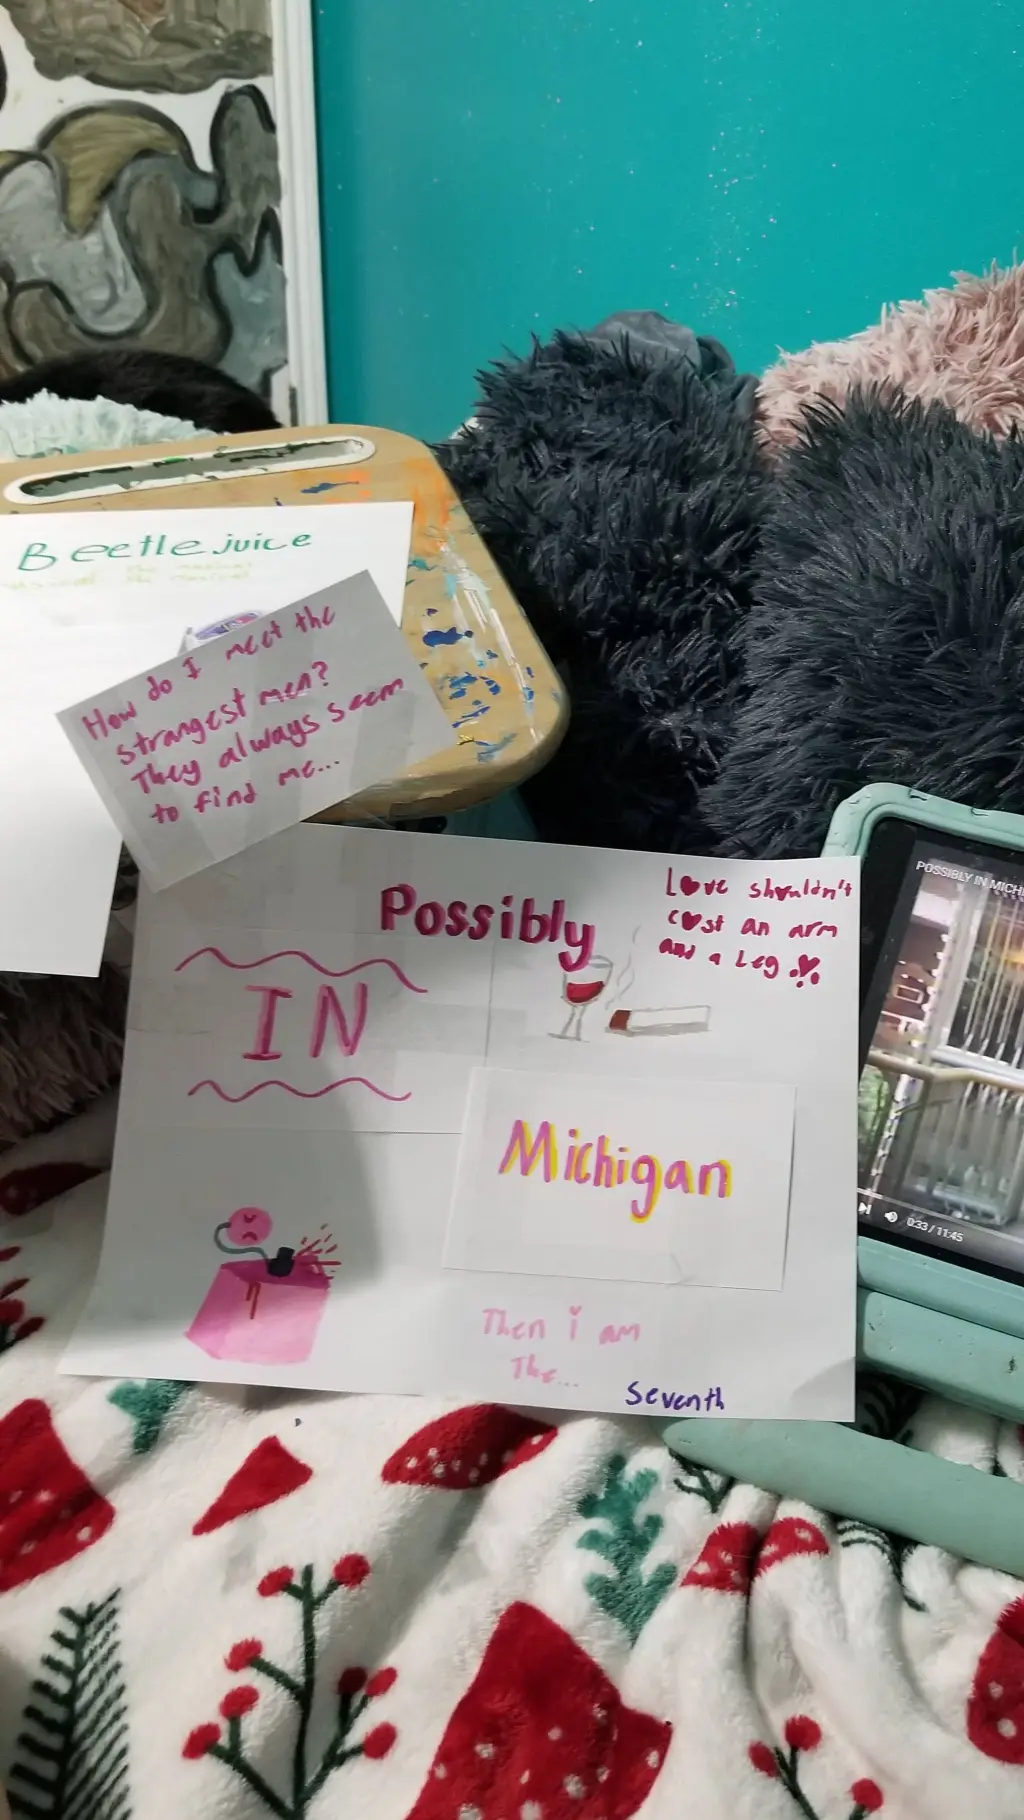 Beetlejuice
How do I meet the
strangest men?
They always seem
to find me...
Possibly
IN
Michigan
Love shouldn't
cost an arm
and a Leg
Then i am
The...
Seventh
POSSIBLY IN MICHI
0:33 / 11:45